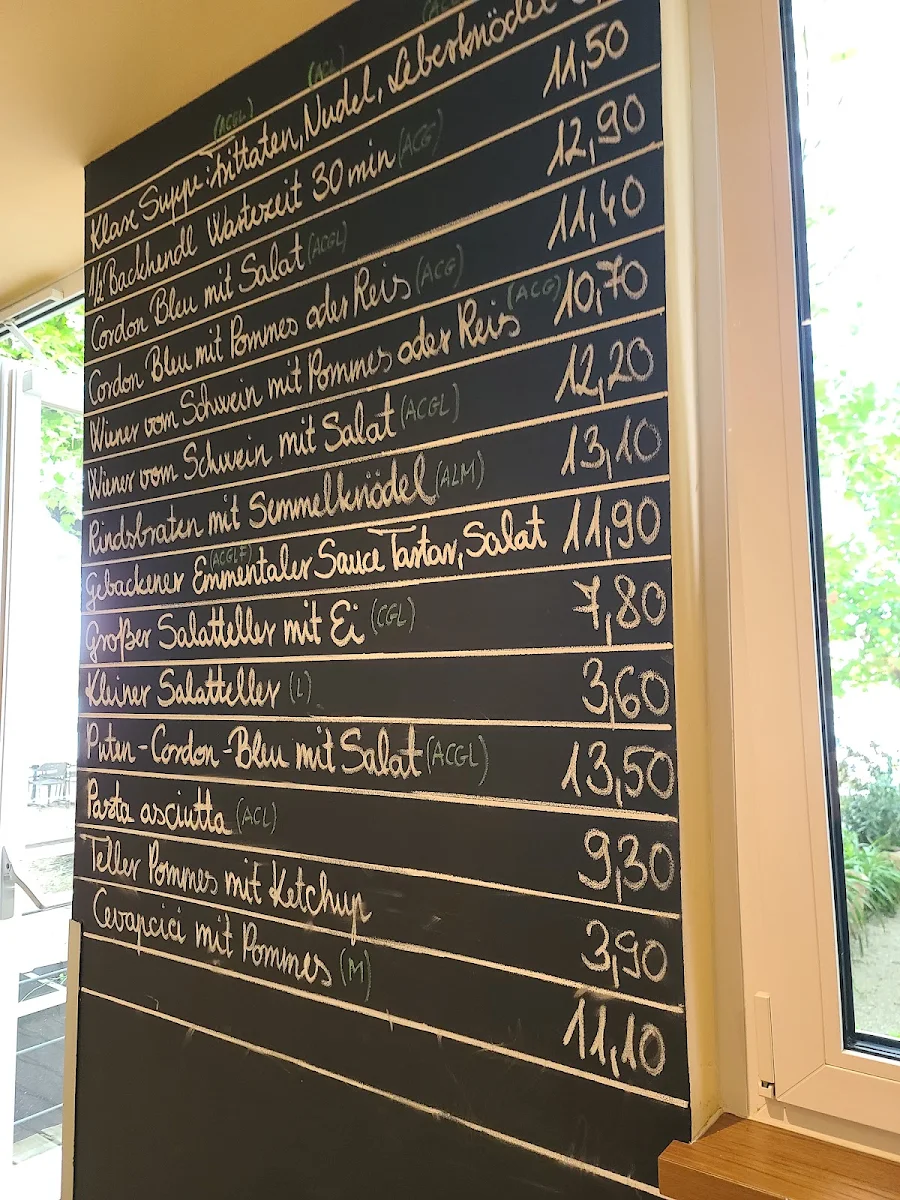 (ACGL) (ACL) (ACGL)
Klare Suppe: Frittaten, Nudel, Leberknödel
1/2 Backhendl Wartezeit 30 min (ACG) 11,50
Cordon Bleu mit Salat (ACGL) 12,90
Cordon Bleu mit Pommes oder Reis (ACG) 11,40
Wiener vom Schwein mit Pommes oder Reis (ACG) 10,70
Wiener vom Schwein mit Salat (ACGL) 12,20
Rindsbraten mit Semmelknödel (ALM) 13,10
Gebackener Emmentaler Sauce Tartar, Salat (ACGLF) 11,90
Großer Salatteller mit Ei (CGL) 7,80
Kleiner Salatteller (L) 3,60
Puten-Cordon-Bleu mit Salat (ACGL) 13,50
Pasta asciutta (ACL) 9,30
Teller Pommes mit Ketchup 3,90
Cevapcici mit Pommes (M) 11,10